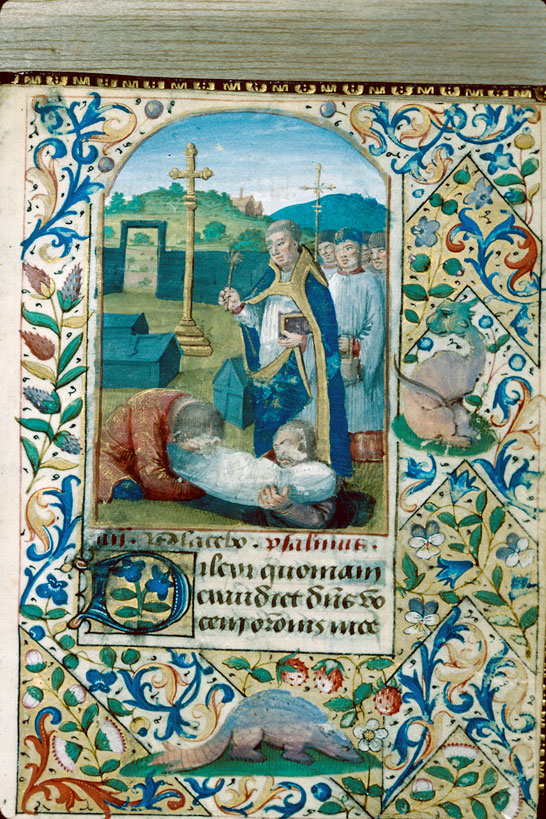 añ. Placebo. psalmus.
Dilexi quoniam
exaudiet dñs vo
cem orõnis mee